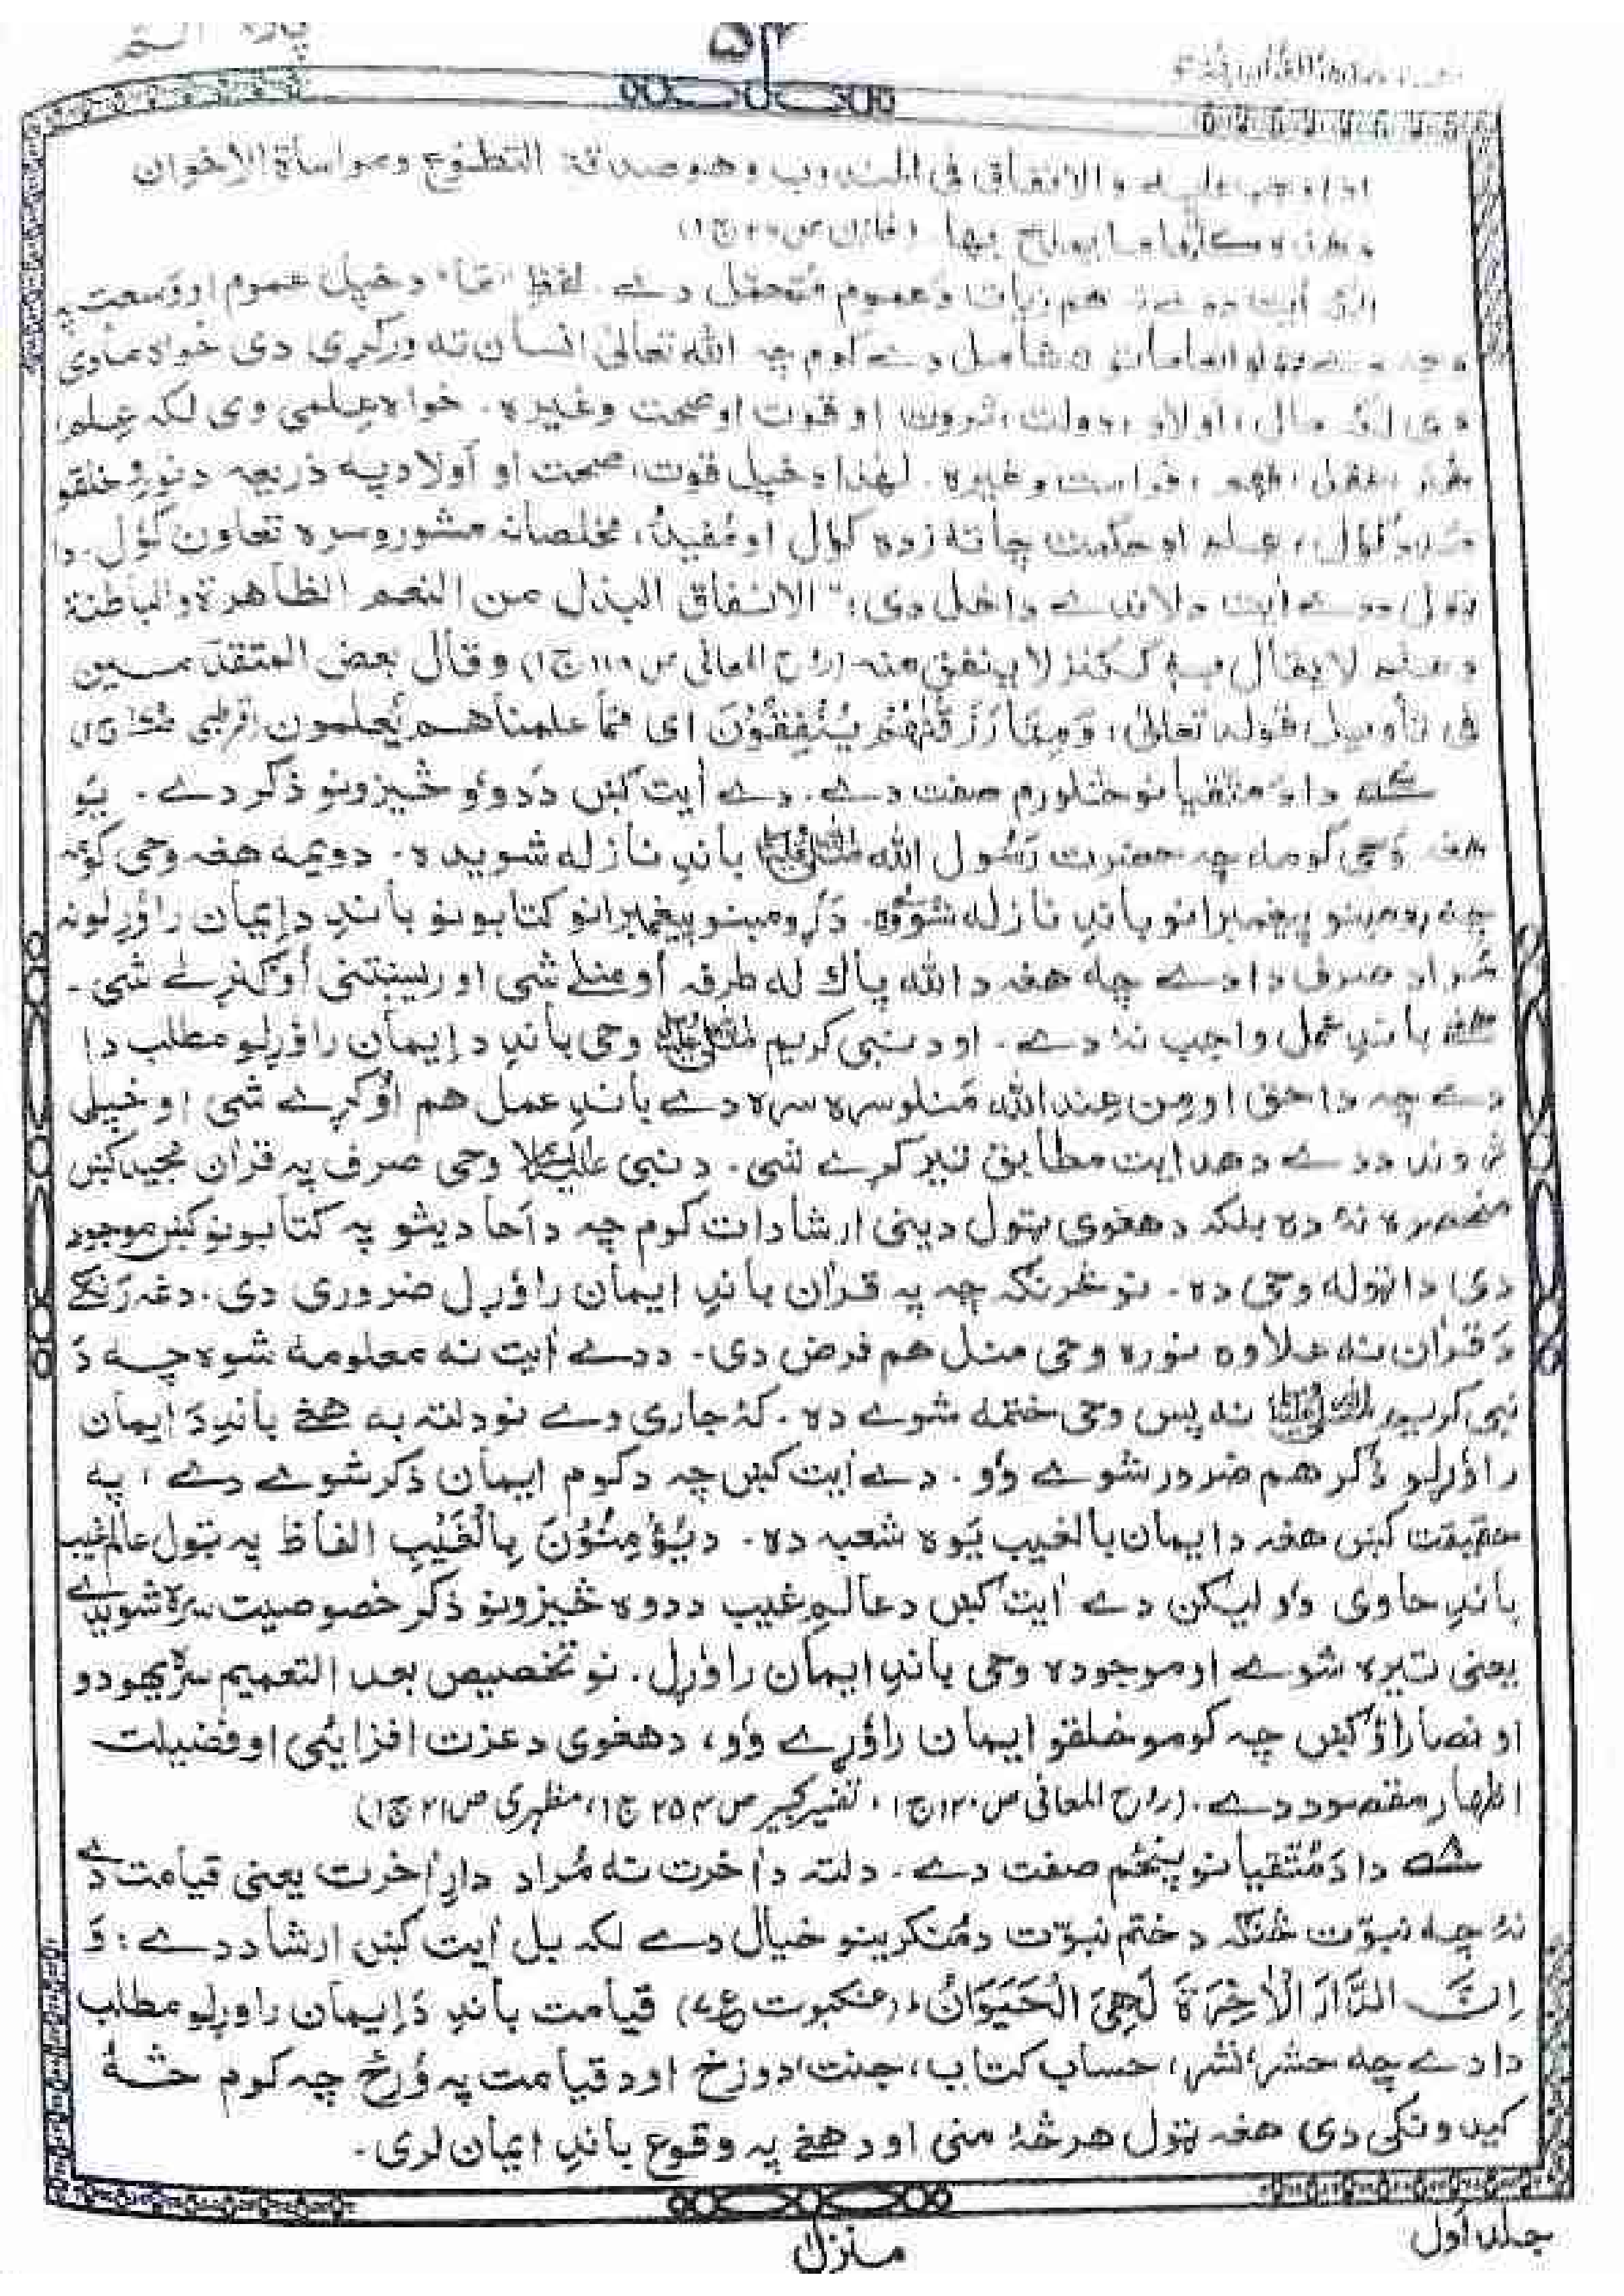 پاره الٓمّٓ
۵۴
والانفاق فی المندوب وهو صدقة التطوع ومواساة الاخوان
وهذه کلها مما یمدح بها. (خازن ص ج۱)
هم زیات د عموم متحمل دے. لفظ "مَا" د خپل عموم او وسعت په
وجه ټولو انعاماتو ته شامل دے کوم چه الله تعالیٰ انسان ته ورکړی دی خواه مادی
وی لکه مال، اولاد، دولت، ثروت او قوت او صحت وغیره. خواه علمی وی لکه علم،
عقل، فهم، فراست وغیره. لهٰذا د خپل قوت، صحت او اولاد په ذریعه د نورو خلقو
مدد کول، علم او حکمت چا ته زده کول او مُفید، مخلصانه مشورو سره تعاون کول. دا
ټول ددے أیت د لاندے داخل دی: "الانفاق البذل من النعم الظاهرة والباطنة
وعلم لا یقال به ککنز لا ینفق منه (روح المعانی ص ج۱) وقال بعض المتقدمین
فی تأویل قوله تعالیٰ، وَمِمَّا رَزَقْنٰهُمْ یُنْفِقُوْنَ ای مما علمناهم یُعلمون (قرطبی ج۱)
دا دَ متقیانو څلورم صفت دے. دے أیت کښ دَ دوؤ څیزونو ذکر دے. یَو
هغه وَحی کومه چه حضرت رَسُول الله ﷺ باندِ نازله شویده. دویمه هغه وحی کومه
چه رومبنو پیغمبرانو باندِ نازله شوؤه. دَ رومبنو پیغمبرانو کتابونو باندِ د اِیمان راوړلو نه
مُراد صرف دا دے چه هغه د الله پاک له طرفه أو منلے شی او ریښتنی أوګنړلے شی.
باندِ عمل واجب نۀ دے. او د نبی کریم ﷺ وحی باندِ د اِیمان راوړلو مطلب دا
دے چه دا حق او مِن عِند الله مَنلو سره سره دے باندِ عمل هم أوکړے شی او خپل
ژوند ددے د هدایت مطابق تیر کړے شی. د نبی علیه السلام وحی صرف په قرأن مجید کښ
منحصره نۀ ده بلکه د هغوی ټول دینی ارشادات کوم چه د أحادیثو په کتابونو کښ موجود
دی دا ټوله وحی ده. نو څرنګه چه په قرأن باندِ ایمان راوړل ضروری دی. دغه رَنګے
دَ قرأن نه علاوه نوره وحی منل هم فرض دی. ددے أیت نه معلومه شوه چه دَ
نبی کریم ﷺ نه پس وحی ختمه شوے ده. کۀ جاری دے نو دلته به هغے باندِ دَ اِیمان
راوړلو ذکر هم ضرور شوے وو. دے أیت کښ چه د کوم ایمان ذکر شوے دے، په
حقیقت کښ هغه د ایمان بالغیب یَوه شعبه ده. د یُؤْمِنُوْنَ بِالْغَیْبِ الفاظ په ټول عالم غیب
باندِ حاوی وو لیکن دے أیت کښ د عالمِ غیب د دوه څیزونو ذکر خصوصیت سره شویدے
یعنی تیره شوے او موجوده وحی باندِ ایمان راوړل. نو تخصیص بعد التعمیم سره یهودو
او نصاراؤ کښ چه کومو خلقو ایمان راوړے وو، د هغوی د عزت افزایئ او فضیلت
اظهار مقصود دے. (روح المعانی ص ۱۲۰ ج۱، تفسیر کبیر ص ۲۵۴ ج۱، مظهری ص ۲۱ ج۱)
دا دَ مُتّقیانو پنځم صفت دے. دلته د أخرت نه مُراد دارِ أخرت یعنی قیامت دے
نۀ چه نبوّت څنګه د ختم نبوّت د مُنکرینو خیال دے لکه بل أیت کښ ارشاد دے: وَ
اِنَّ الدَّارَ الْاٰخِرَةَ لَهِیَ الْحَیَوَانُ، (عنکبوت ع۷) قیامت باندِ دَ اِیمان راوړلو مطلب
دا دے چه حشر، نشر، حساب کتاب، جنت، دوزخ او د قیامت په وُرځ چه کوم څۀ
کیدونکی دی هغه ټول هر څۀ منی او د هغے په وقوع باندِ ایمان لری.
منزل
جلد اول